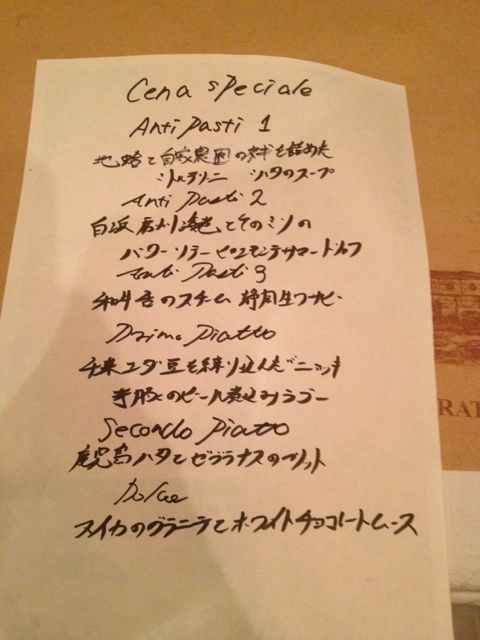 Cena speciale
Anti Pasti 1
地蛤と自家農園の を詰めた
ハタのスープ
Anti Pasti 2
白浜 とそのミソの
バターソテー サマートリュフ
Anti Pasti 3
和牛舌のスチーム 静岡生ワサビー
Primo Piatto
エダ豆を練り込んだニョッキ
豚のビール煮込みラグー
Secondo Piatto
鹿児島ハタとゼブラナスの
Dolce
スイカのグラニテとホワイトチョコレートムース
RAT